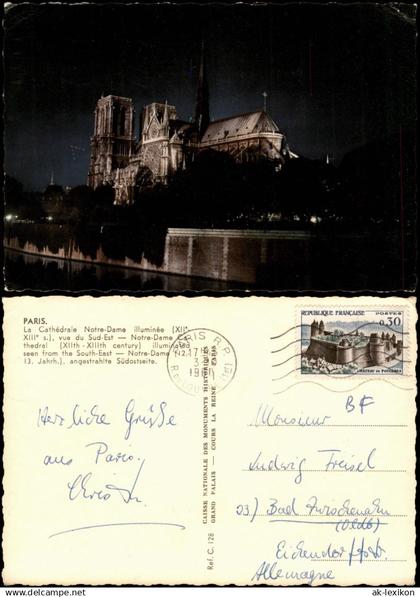 PARIS.
La Cathédrale Notre-Dame illuminée (XIIe
XIIIe s.), vue du Sud-Est — Notre-Dame
thedral (XIIth - XIIIth century) illuminated
seen from the South-East — Notre-Dame (12.
13. Jahrh.), angestrahlte Südostseite.
PARIS R.P.
17
3
1961
RÉPUBLIQUE FRANÇAISE
POSTES
0,30
CHÂTEAU DE FOUGÈRES
CAISSE NATIONALE DES MONUMENTS HISTORIQUES
GRAND PALAIS — COURS LA REINE — PARIS
Ref. C. 128
Herzliche Grüße
aus Paris
BF
Monsieur
Ludwig Freisel
23) Bad Zwischenahn
(Oldb)
Eichendorffstr.
Allemagne
© ak-lexikon.com